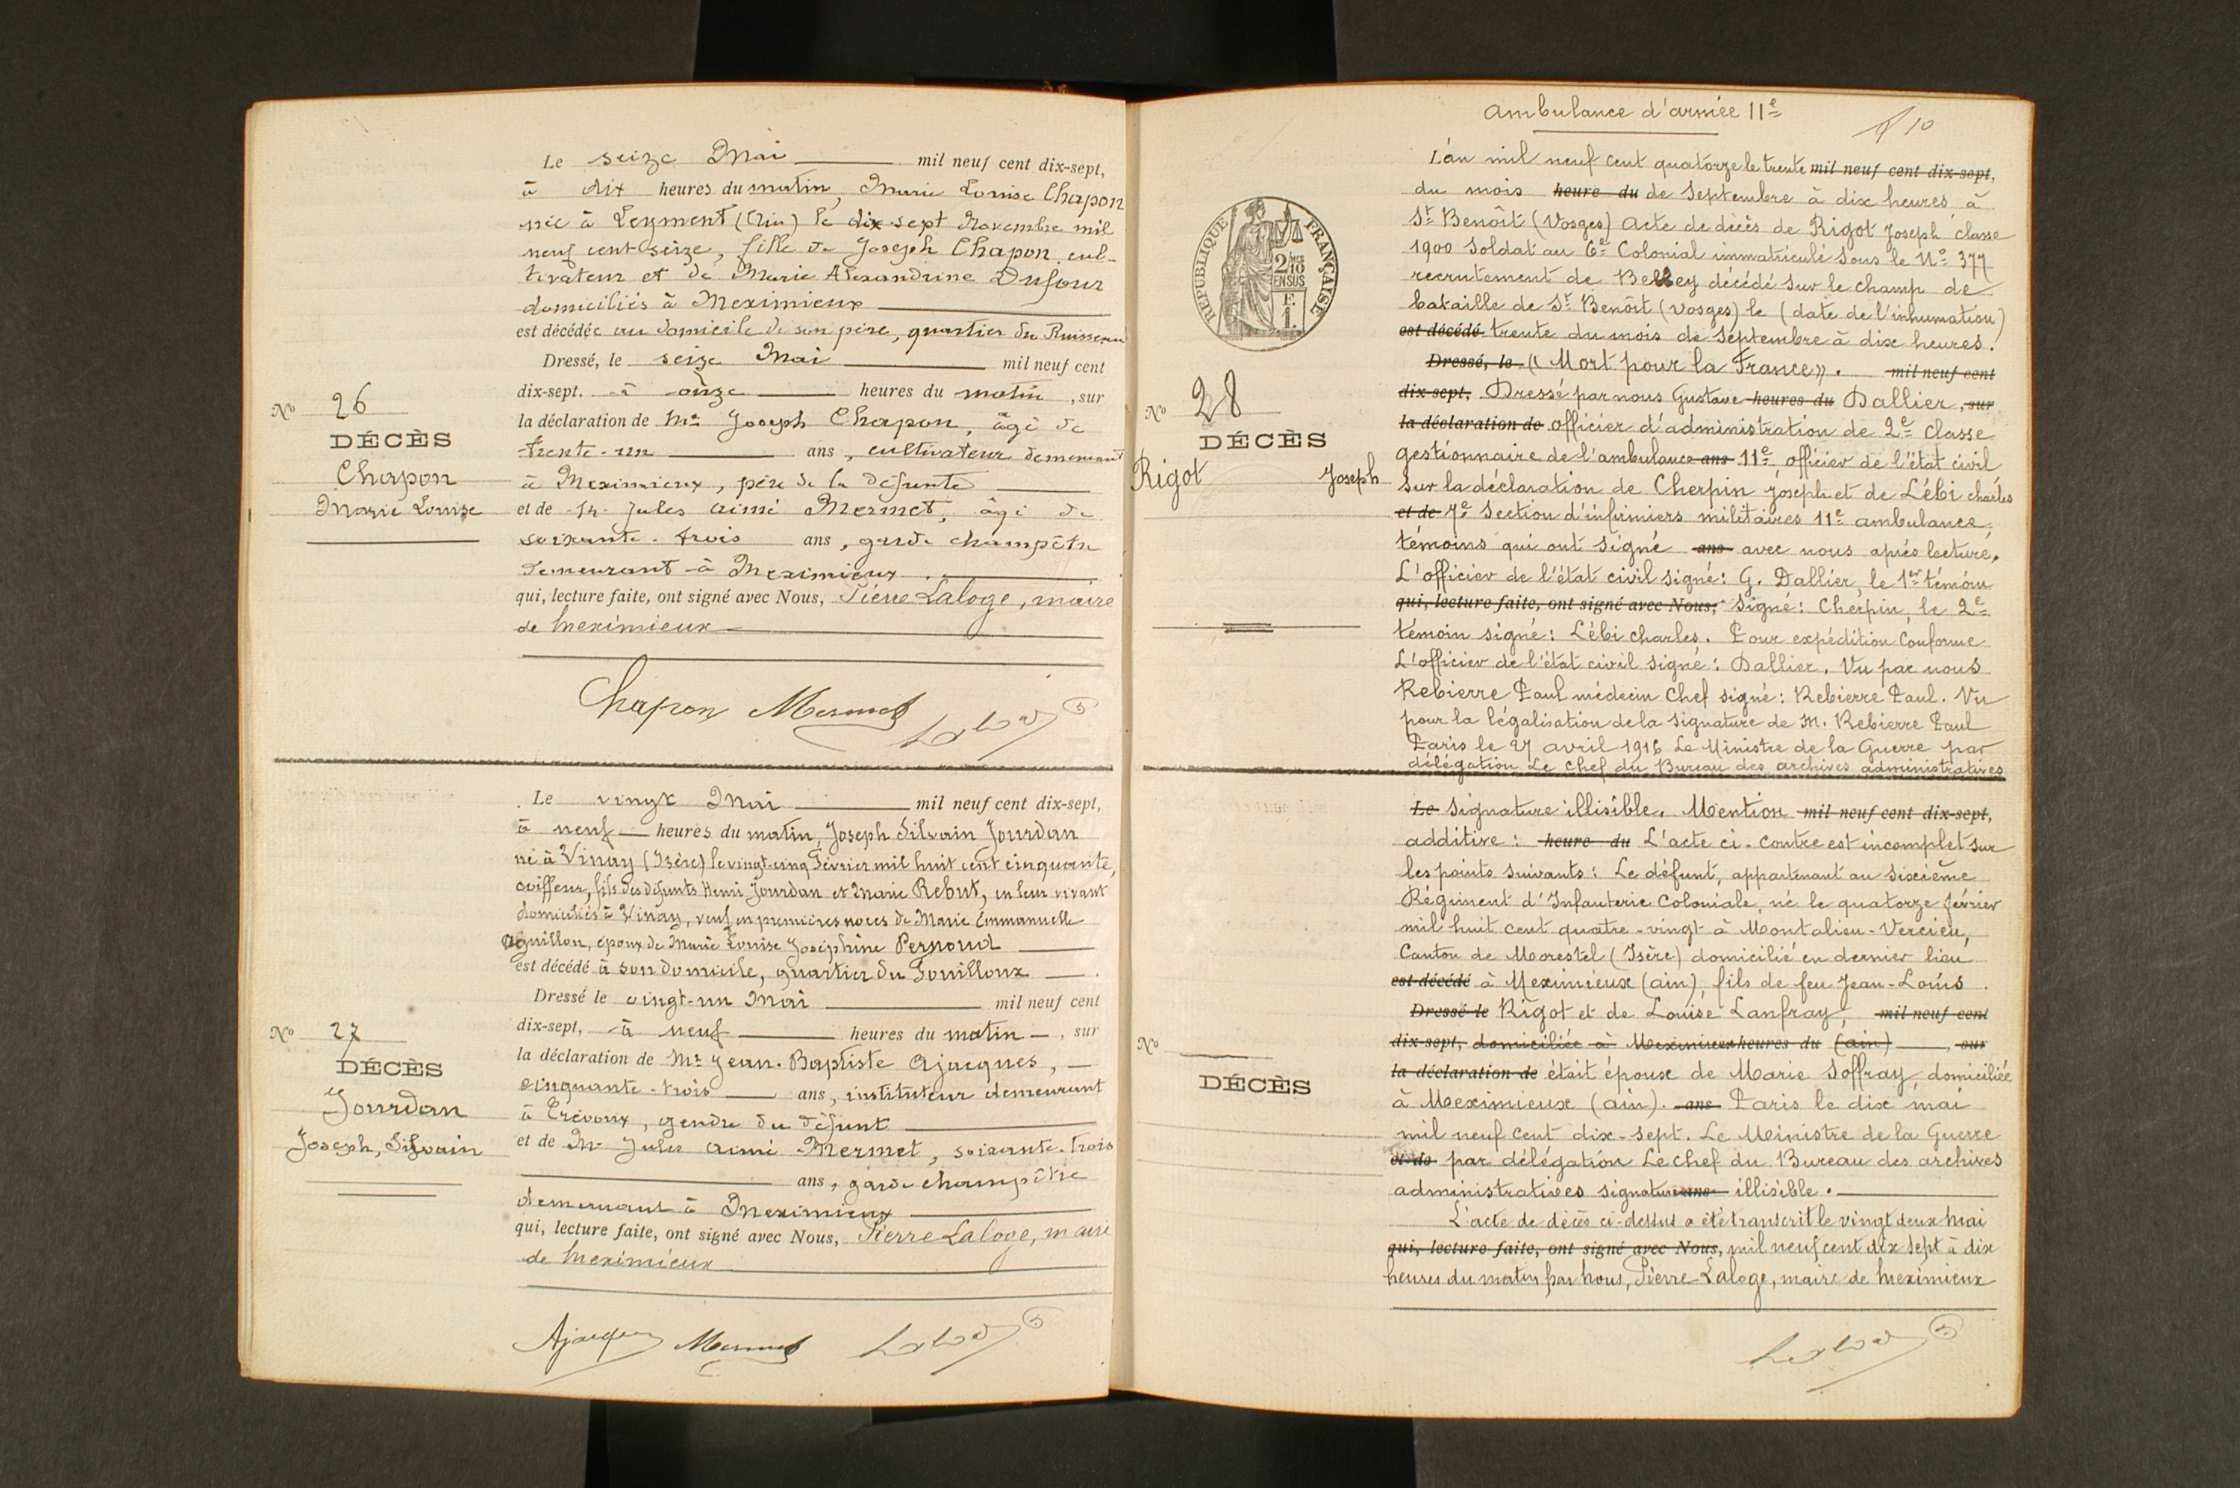 Le seize Mai mil neuf cent dix-sept,
à dix heures du matin, Marie Louise Chapon
née à Leyment (Ain) le dix sept Novembre mil
neuf cent seize, fille de Joseph Chapon, cul-
tivateur et de Marie Alexandrine Dufour
domiciliés à Meximieux
est décédée au domicile de son père, quartier du Ruisseau
Dressé, le seize Mai mil neuf cent
dix-sept, à onze heures du matin, sur
la déclaration de Mr Joseph Chapon, âgé de
trente-un ans, cultivateur demeurant
à Meximieux, père de la défunte
et de Mr Jules Aimé Mermet, âgé de
soixante-trois ans, garde champêtre
demeurant à Meximieux.
qui, lecture faite, ont signé avec Nous, Pierre Laloge, maire
de Meximieux
No 26
DÉCÈS
Chapon
Marie Louise
Chapon Mermet
Le vingt Mai mil neuf cent dix-sept,
à neuf heures du matin, Joseph Silvain Jourdan
né à Vinay (Isère) le vingt-cinq Février mil huit cent cinquante,
coiffeur, fils des défunts Henri Jourdan et Marie Rebut, en leur vivant
domiciliés à Vinay, veuf en premières noces de Marie Emmanuelle
Aguillon, époux de Marie Louise Joséphine Pernoud
est décédé à son domicile, quartier du Fouilloux
Dressé le vingt-un Mai mil neuf cent
dix-sept, à neuf heures du matin, sur
la déclaration de Mr Jean-Baptiste Ajacques,
cinquante-trois ans, instituteur demeurant
à Trévoux, gendre du défunt
et de Mr Jules Aimé Mermet, soixante-trois
ans, garde champêtre
demeurant à Meximieux
qui, lecture faite, ont signé avec Nous, Pierre Laloge, maire
de Meximieux
No 27
DÉCÈS
Jourdan
Joseph, Silvain
Ajacques Mermet
Ambulance d'armée 11e
10
RÉPUBLIQUE FRANÇAISE
2/10 EN SUS
1 F.
L'an mil neuf cent quatorze le trente mil neuf cent dix-sept,
du mois heure du de Septembre à dix heures, à
St Benôit (Vosges) Acte de décès de Rigot Joseph classe
1900 Soldat au 6e Colonial immatriculé sous le No 377
recrutement de Belley décédé sur le champ de
bataille de St Benôit (Vosges) le (date de l'inhumation)
est décédé trente du mois de Septembre à dix heures.
Dressé, le « Mort pour la France ». mil neuf cent
dix-sept, Dressé par nous Gustave heures du Dallier, sur
la déclaration de officier d'administration de 2e classe
gestionnaire de l'ambulance ans 11e officier de l'état civil
sur la déclaration de Cherpin Joseph et de Lébi charles
et de 7e Section d'infirmiers militaires 11e ambulance
témoins qui ont signé ans avec nous après lecture.
L'officier de l'état civil signé: G. Dallier, le 1er témoin
qui, lecture faite, ont signé avec Nous, signé: Cherpin, le 2e
témoin signé: Lébi charles. Pour expédition Conforme
L'officier de l'état civil signé: Dallier. Vu par nous
Rebierre Paul médecin Chef signé: Rebierre Paul. Vu
pour la légalisation de la signature de M. Rebierre Paul
Paris le 27 avril 1916 Le Ministre de la Guerre par
délégation Le Chef du Bureau des archives administratives
No 28
DÉCÈS
Rigot Joseph
Le Signature illisible. Mention mil neuf cent dix-sept,
additive: heure du L'acte ci-contre est incomplet sur
les points suivants: Le défunt, appartenant au sixième
Régiment d'Infanterie Coloniale, né le quatorze février
mil huit cent quatre-vingt à Montalieu-Vercieu,
Canton de Morestel (Isère) domicilié en dernier lieu
est décédé à Meximieux (ain), fils de feu Jean-Louis
Dressé le Rigot et de Louise Lanfray, mil neuf cent
dix-sept, domiciliée à Meximieux heures du (ain), sur
la déclaration de était époux de Marie Soffray, domiciliée
à Meximieux (ain). ans Paris le dix mai
mil neuf cent dix-sept. Le Ministre de la Guerre
et de par délégation Le chef du Bureau des archives
administratives signature ans illisible.
L'acte de décès ci-dessus a été transcrit le vingt deux Mai
qui, lecture faite, ont signé avec Nous, mil neuf cent dix sept à dix
heures du matin par Nous, Pierre Laloge, maire de Meximieux
No
DÉCÈS